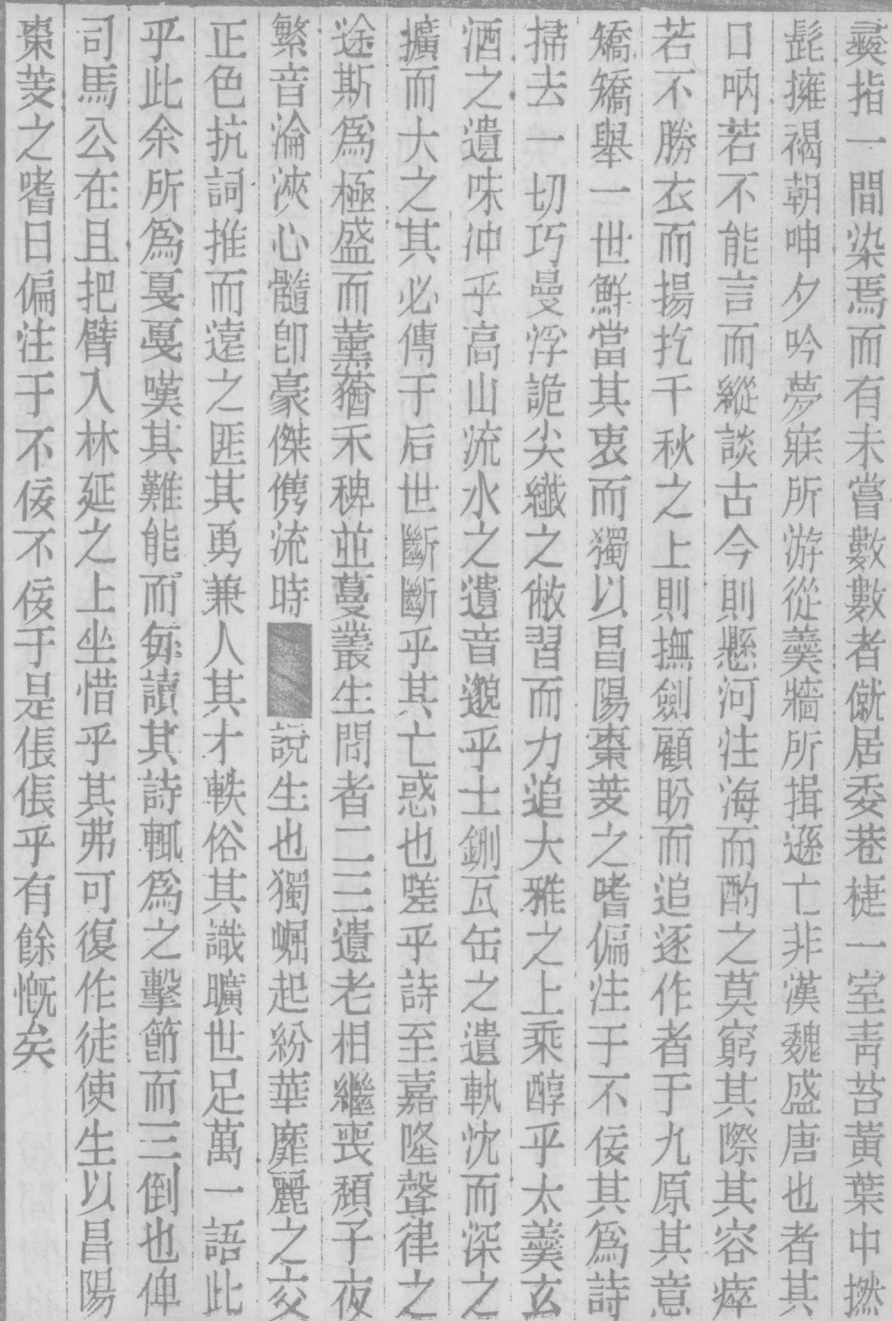 彛指一間染焉而有未嘗數數者僦居委巷楗一室靑苔黃葉中撚
髭擁褐朝呻夕吟夢寐所游從羹牆所揖遜亡非漢魏盛唐也者其
口吶若不能言而縱談古今則懸河注海而酌之莫窮其際其容瘁
若不勝衣而揚扢千秋之上則撫劍顧盼而追逐作者于九原其意
矯矯舉一世鮮當其衷而獨以昌陽棗芰之嗜偏注于不佞其爲詩
掃去一切巧曼浮詭尖纖之敝習而力追大雅之上乘醇乎太羹玄
酒之遺味沖乎高山流水之遺音邈乎土鉶瓦缶之遺軌沈而深之
擴而大之其必傳于后世斷斷乎其亡惑也嗟乎詩至嘉隆聲律之
途斯爲極盛而薰蕕禾稗並蔓叢生間者二三遺老相繼喪頹子夜
繁音淪浹心髓卽豪傑儁流時說生也獨崛起紛華靡麗之交
正色抗詞推而遠之匪其勇兼人其才軼俗其識曠世足萬一語此
乎此余所爲戛戛嘆其難能而每讀其詩輒爲之擊節而三倒也俾
司馬公在且把臂入林延之上坐惜乎其弗可復作徒使生以昌陽
棗芰之嗜日偏注于不佞不佞于是倀倀乎有餘慨矣